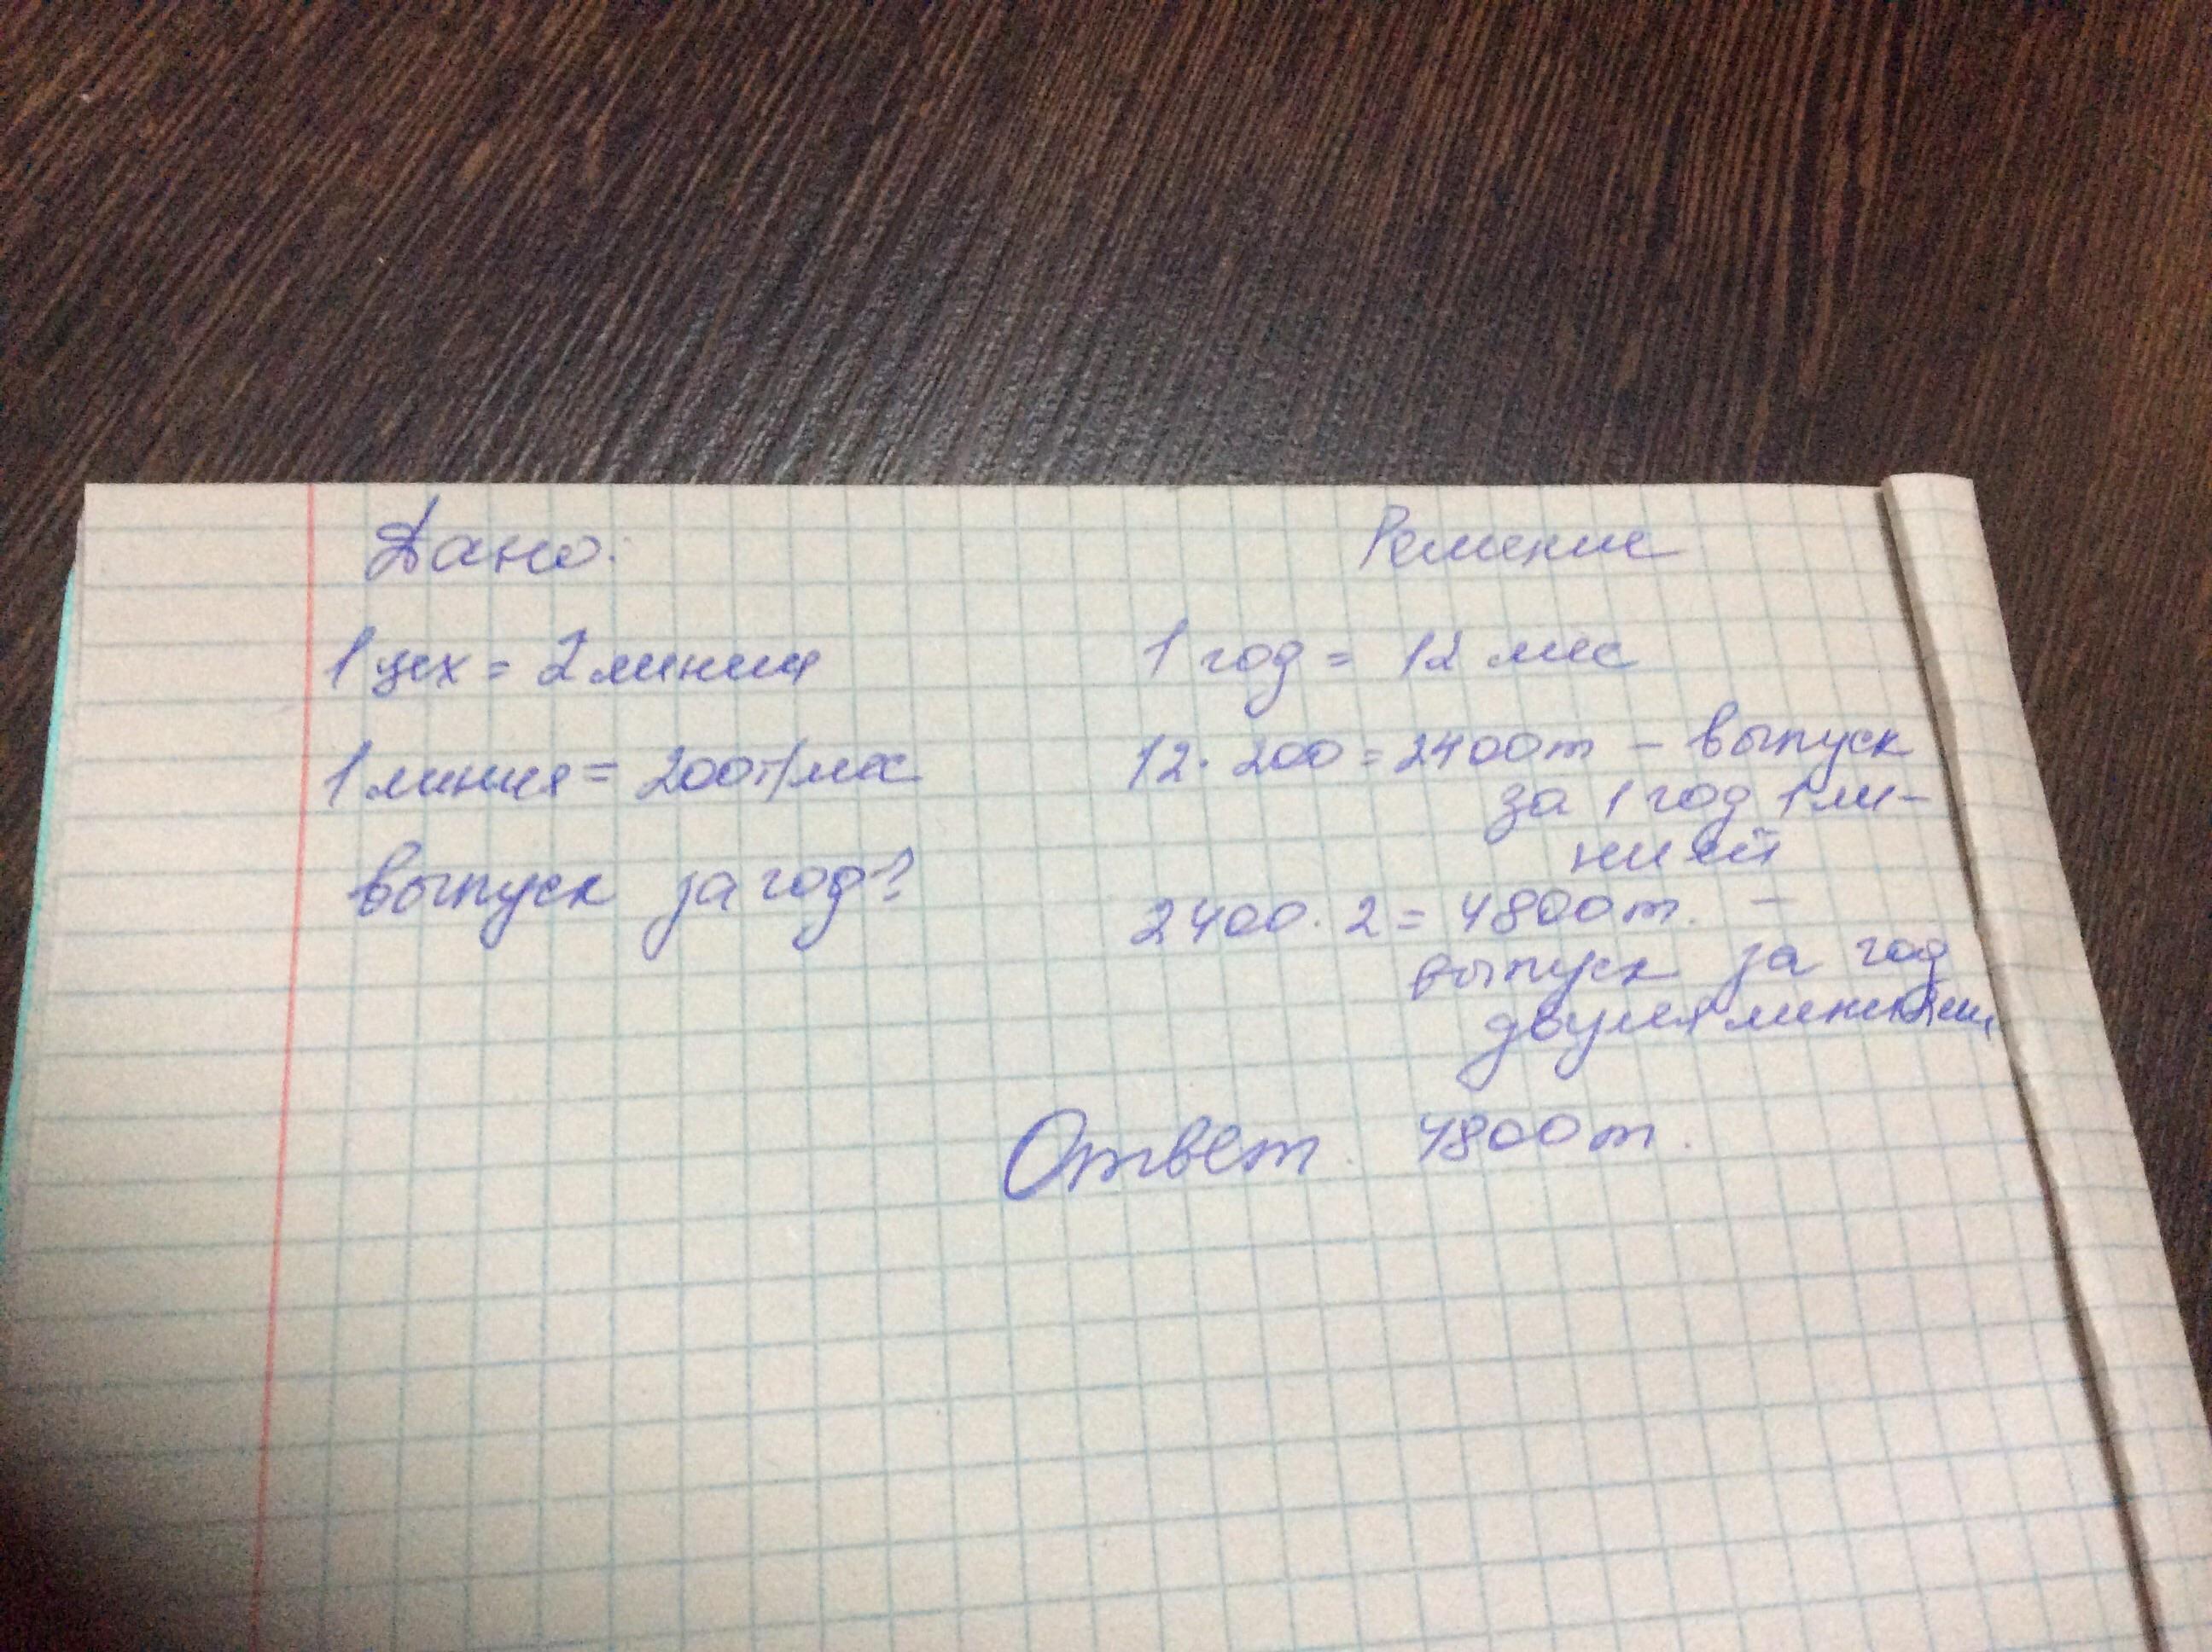 Дано:
1 цех = 2 линии
1 линия = 200т/мес
выпуск за год?
Решение
1 год = 12 мес
12 · 200 = 2400т - выпуск
за 1 год 1 ли-
нией
2400 · 2 = 4800т. -
выпуск за год
двумя линиями
Ответ. 4800т.